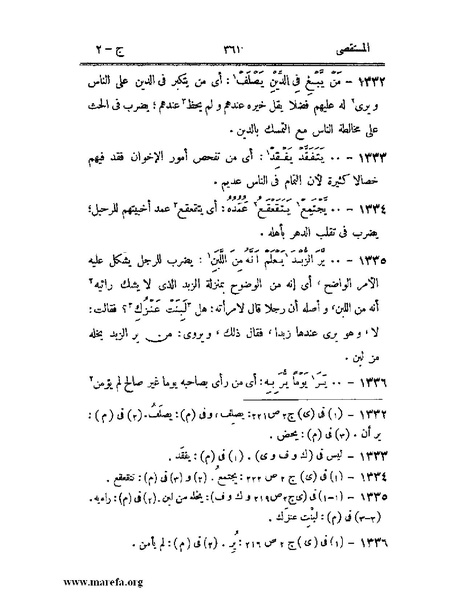 المستقصى ٣٦١ ج – ٢
١٣٣٢ – مَنْ يَبْغِ فِى الدِّينِ يَصْلَفْ¹: أى من يتكبر فى الدين على الناس
ويرى² له عليهم فضلا يقل خيره عندهم و لم يحظ³ عندهم؛ يضرب فى الحث
على مخالطة الناس مع التمسك بالدين.
١٣٣٣ – .. يَتَفَقَّد يَفْقِدْ¹: أى من تفحص أمور الإخوان فقد فيهم
خصالا كثيرة لأن التمام فى الناس عديم.
١٣٣٤ – .. يَجْتَمِعْ¹ يَتَقَعْقَعْ² عَمَدُهُ: أى يتقعقع³ عمد أخبيتهم للرحيل؛
يضرب فى تقلب الدهر بأهله.
١٣٣٥ – .. يَرَ الزُّبْدَ يَعْلَمْ أَنَّهُ مِنَ اللَّبَنِ¹: يضرب للرجل يشكل عليه
الأمر الواضح، أى إنه من الوضوح بمنزلة الزبد الذى لا يشك رائيه²
أنه من اللبن، و أصله أن رجلا قال لامرأته: هل ³لَبِنَتْ عَنْزُكِ³؟ فقالت:
لا، و هو يرى عندها زبدا، فقال ذلك، و يروى: من ير الزبد يخله
من لبن.
١٣٣٦ – .. يَرَ¹ يَوْمًا يُرَ بِهِ: أى من رأى بصاحبه يوما غير صالح لم يؤمن²
١٣٣٢ – (١) فى (ى) ج ٢ ص ٢٢١: يصلف، و فى (م): يصلَفُ. (٢) فى (م):
ير أن. (٣) فى (م): يحض.
١٣٣٣ – ليس فى (ك و ف و ى). (١) فى (م): يفقَد.
١٣٣٤ – (١) فى (ى) ج ٢ ص ٢٢٢: يجتمعُ. (٢) و (٣) فى (م): تتقعقع.
١٣٣٥ – (١–١) فى (ى) ج ٢ ص ٢١٩ و ك و ف): يخله من لبن. (٢) فى (م): راءيه.
(٣–٣) فى (م): لبنْتِ عنزك.
١٣٣٦ – (١) فى (ى) ج ٢ ص ٢١٦: يُر. (٢) فى (م): لم يأمن.
www.marefa.org